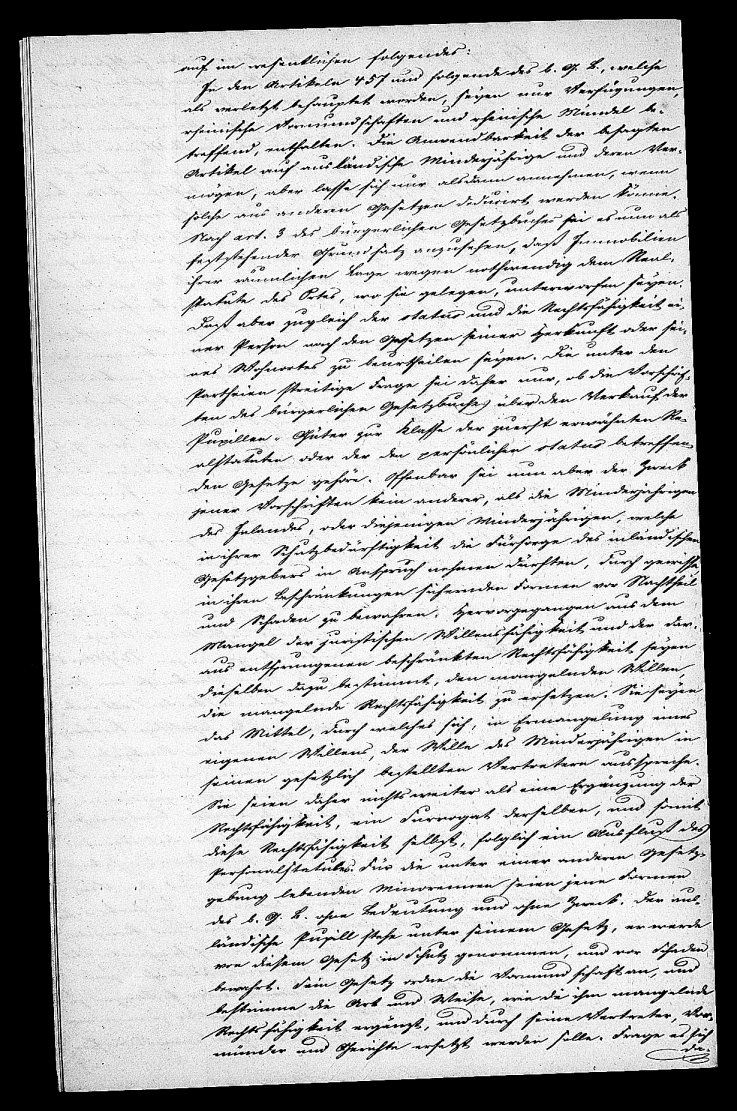 auf im wesentlichen folgendes:
In den Artikeln 457 und folgende des b. G. B., welche
als verletzt behauptet worden, seyen nur Verfügungen,
rheinische Vormundschaften und rheinische Mündel be-
treffend, enthalten. Die Anwendbarkeit der besagten
Artikel auf ausländische Minderjährige und deren Ver-
mögen, aber lasse sich nur alsdann annehmen, wenn
solche aus anderen Gesetzen deducirt werden könne.
Nach art. 3 des bürgerlichen Gesetzbuches sei es nun als
feststehender Grundsatz anzusehen, daß Immobilien
ihrer räumlichen Lage wegen nothwendig dem Real-
statute des Ortes, wo sie gelegen, unterworfen seyen.
Daß aber zugleich der status und die Rechtsfähigkeit ei-
ner Person nach den Gesetzen seiner Herkunft oder sei-
nes Wohnortes zu beurtheilen seyen. Die unter den
Partheien streitige Frage sei daher nur, ob die Vorschrif-
ten des bürgerlichen Gesetzbuches über den Verkauf der
Pupillen-Güter zur Klasse der zuerst erwähnten Re-
alstatuten oder der den persönlichen status betreffen-
den Gesetze gehöre. Offenbar sei nun aber der Zweck
jener Vorschriften kein anderer, als die Minderjährigen
des Inlandes, oder diejenigen Minderjährigen, welche
in ihrer Schutzbedürftigkeit die Fürsorge des inländischen
Gesetzgebers in Anspruch nehmen dürften, durch gewisse
in ihren Beschränkungen sichernden Formen vor Nachtheil
und Schaden zu bewahren. Hervorgegangen aus dem
Mangel der juristischen Willensfähigkeit und der dar-
aus entsprungenen beschränkten Rechtsfähigkeit seyen
dieselben dazu bestimmt, den mangelnden Willen
die mangelnde Rechtsfähigkeit zu ersetzen. Sie seyen
das Mittel, durch welches sich, in Ermangelung eines
eigenen Willens, der Wille des Minderjährigen in
seinen gesetzlich bestellten Vertretern ausspreche.
Sie seien daher nichts weiter als eine Ergänzung der
Rechtsfähigkeit, ein Surrogat derselben, und somit
diese Rechtsfähigkeit selbst, folglich ein Ausfluß des
Personalstatutes. Für die unter einer anderen Gesetz-
gebung lebenden Minorennen seien jene Formen
des b. G. B. ohne Bedeutung und ohne Zweck. Der aus-
ländische Pupill stehe unter seinem Gesetz, er werde
von diesem Gesetz in Schutz genommen, und vor Schaden
bewahrt. Sein Gesetz ordne die Vormundschaft an, und
bestimme die Art und Weise, wie die ihm mangelnde
Rechtsfähigkeit ergänzt, und durch seine Vertreter, Vor-
münder und Gerichte ersetzt werden solle. Frage es sich
da-